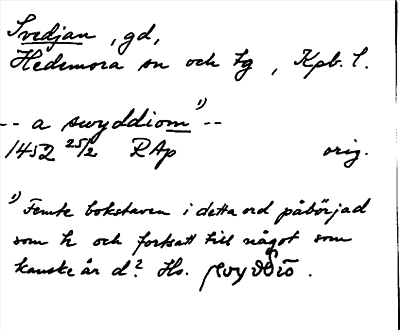 Svedjan, gd,
Hedemora sn och tg, Kpb. l.
-- a swyddiom ¹) --
1452 25/2 RAp orig.
¹) Femte bokstaven i detta ord påbörjad
som h och fortsatt till något som
kanske är d? Hs.